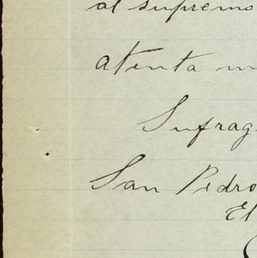 al supremo
atenta m
Sufrag
San Pedro
El